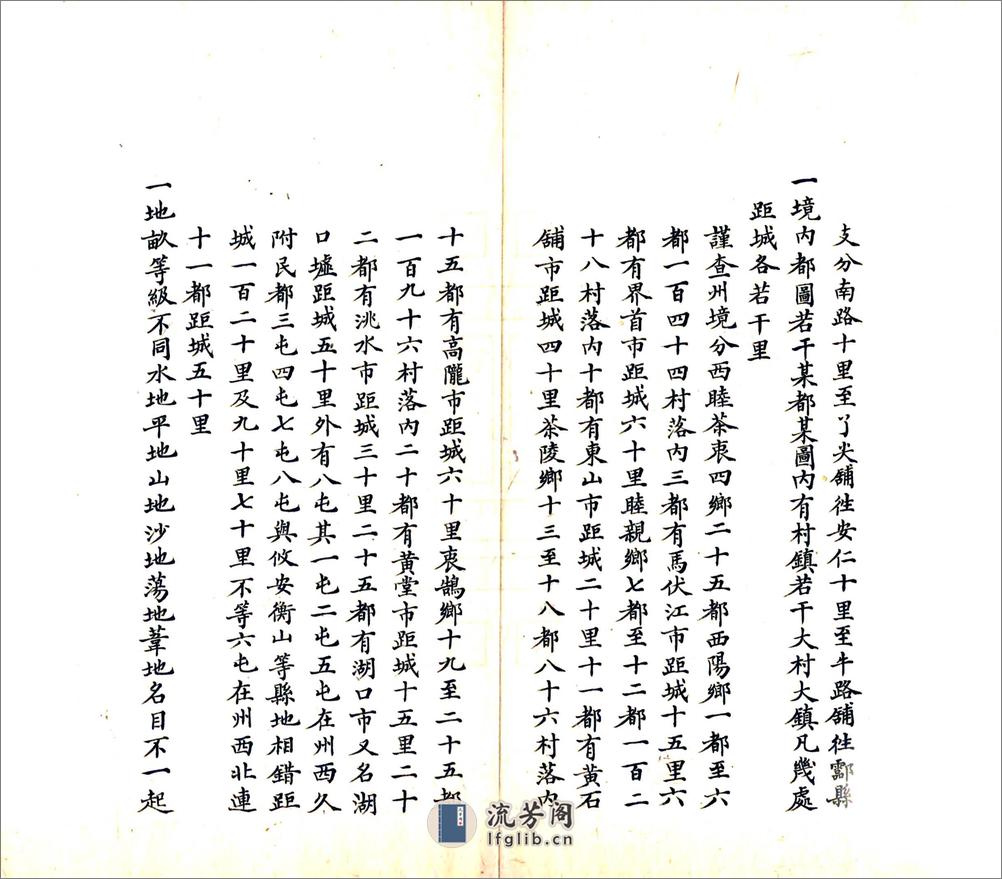 支分南路十里至丫尖舖徃安仁十里至牛路舖徃酃縣
一境内都圖若干某都某圖内有村鎮若干大村大鎮凡幾處
距城各若干里
謹查州境分西睦茶衷四鄉二十五都西陽鄉一都至六
都一百四十四村落内三都有馬伏江市距城十五里六
都有界首市距城六十里睦親鄉七都至十二都一百二
十八村落内十都有東山市距城二十里十一都有黃石
舖市距城四十里茶陵鄉十三至十八都八十六村落内
十五都有高隴市距城六十里衷鵠鄉十九至二十五都
一百九十六村落内二十都有黃堂市距城十五里二十
二都有洮水市距城三十里二十五都有湖口市又名湖
口墟距城五十里外有八屯其一屯二屯五屯在州西久
附民都三屯四屯七屯八屯與攸安衡山等縣地相錯距
城一百二十里及九十里七十里不等六屯在州西北連
十一都距城五十里
一地畝等級不同水地平地山地沙地蕩地葦地名目不一起
流芳阁
lfglib.cn